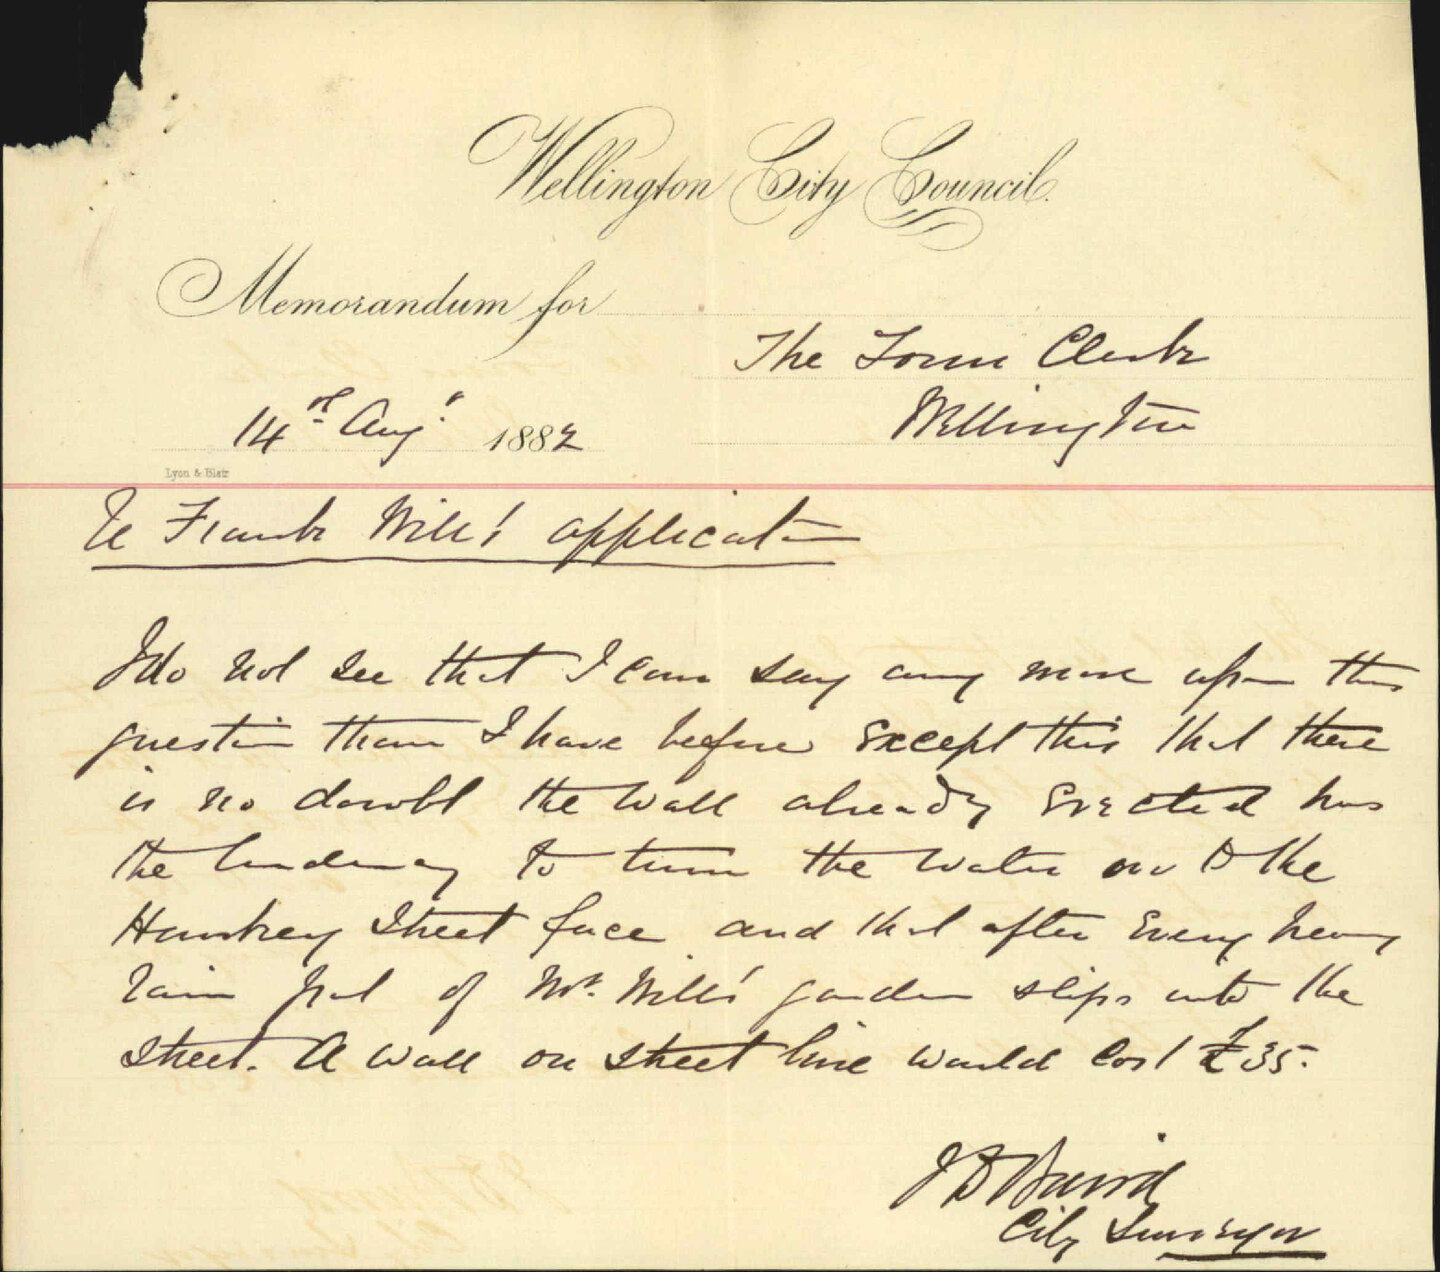 Wellington City Council.
Memorandum for
The Town Clerk
Wellington
14th Augt. 1882
Lyon & Blair
Re Frank Will's application
I do not see that I can say any more upon this
question than I have before except this that there
is no doubt the wall already erected has
the tendency to turn the water on to the
Hawkey Street face and that after every heavy
rain part of Mr. Will's garden slips into the
street. A wall on street line would cost £35.
J D Baird
City Surveyor